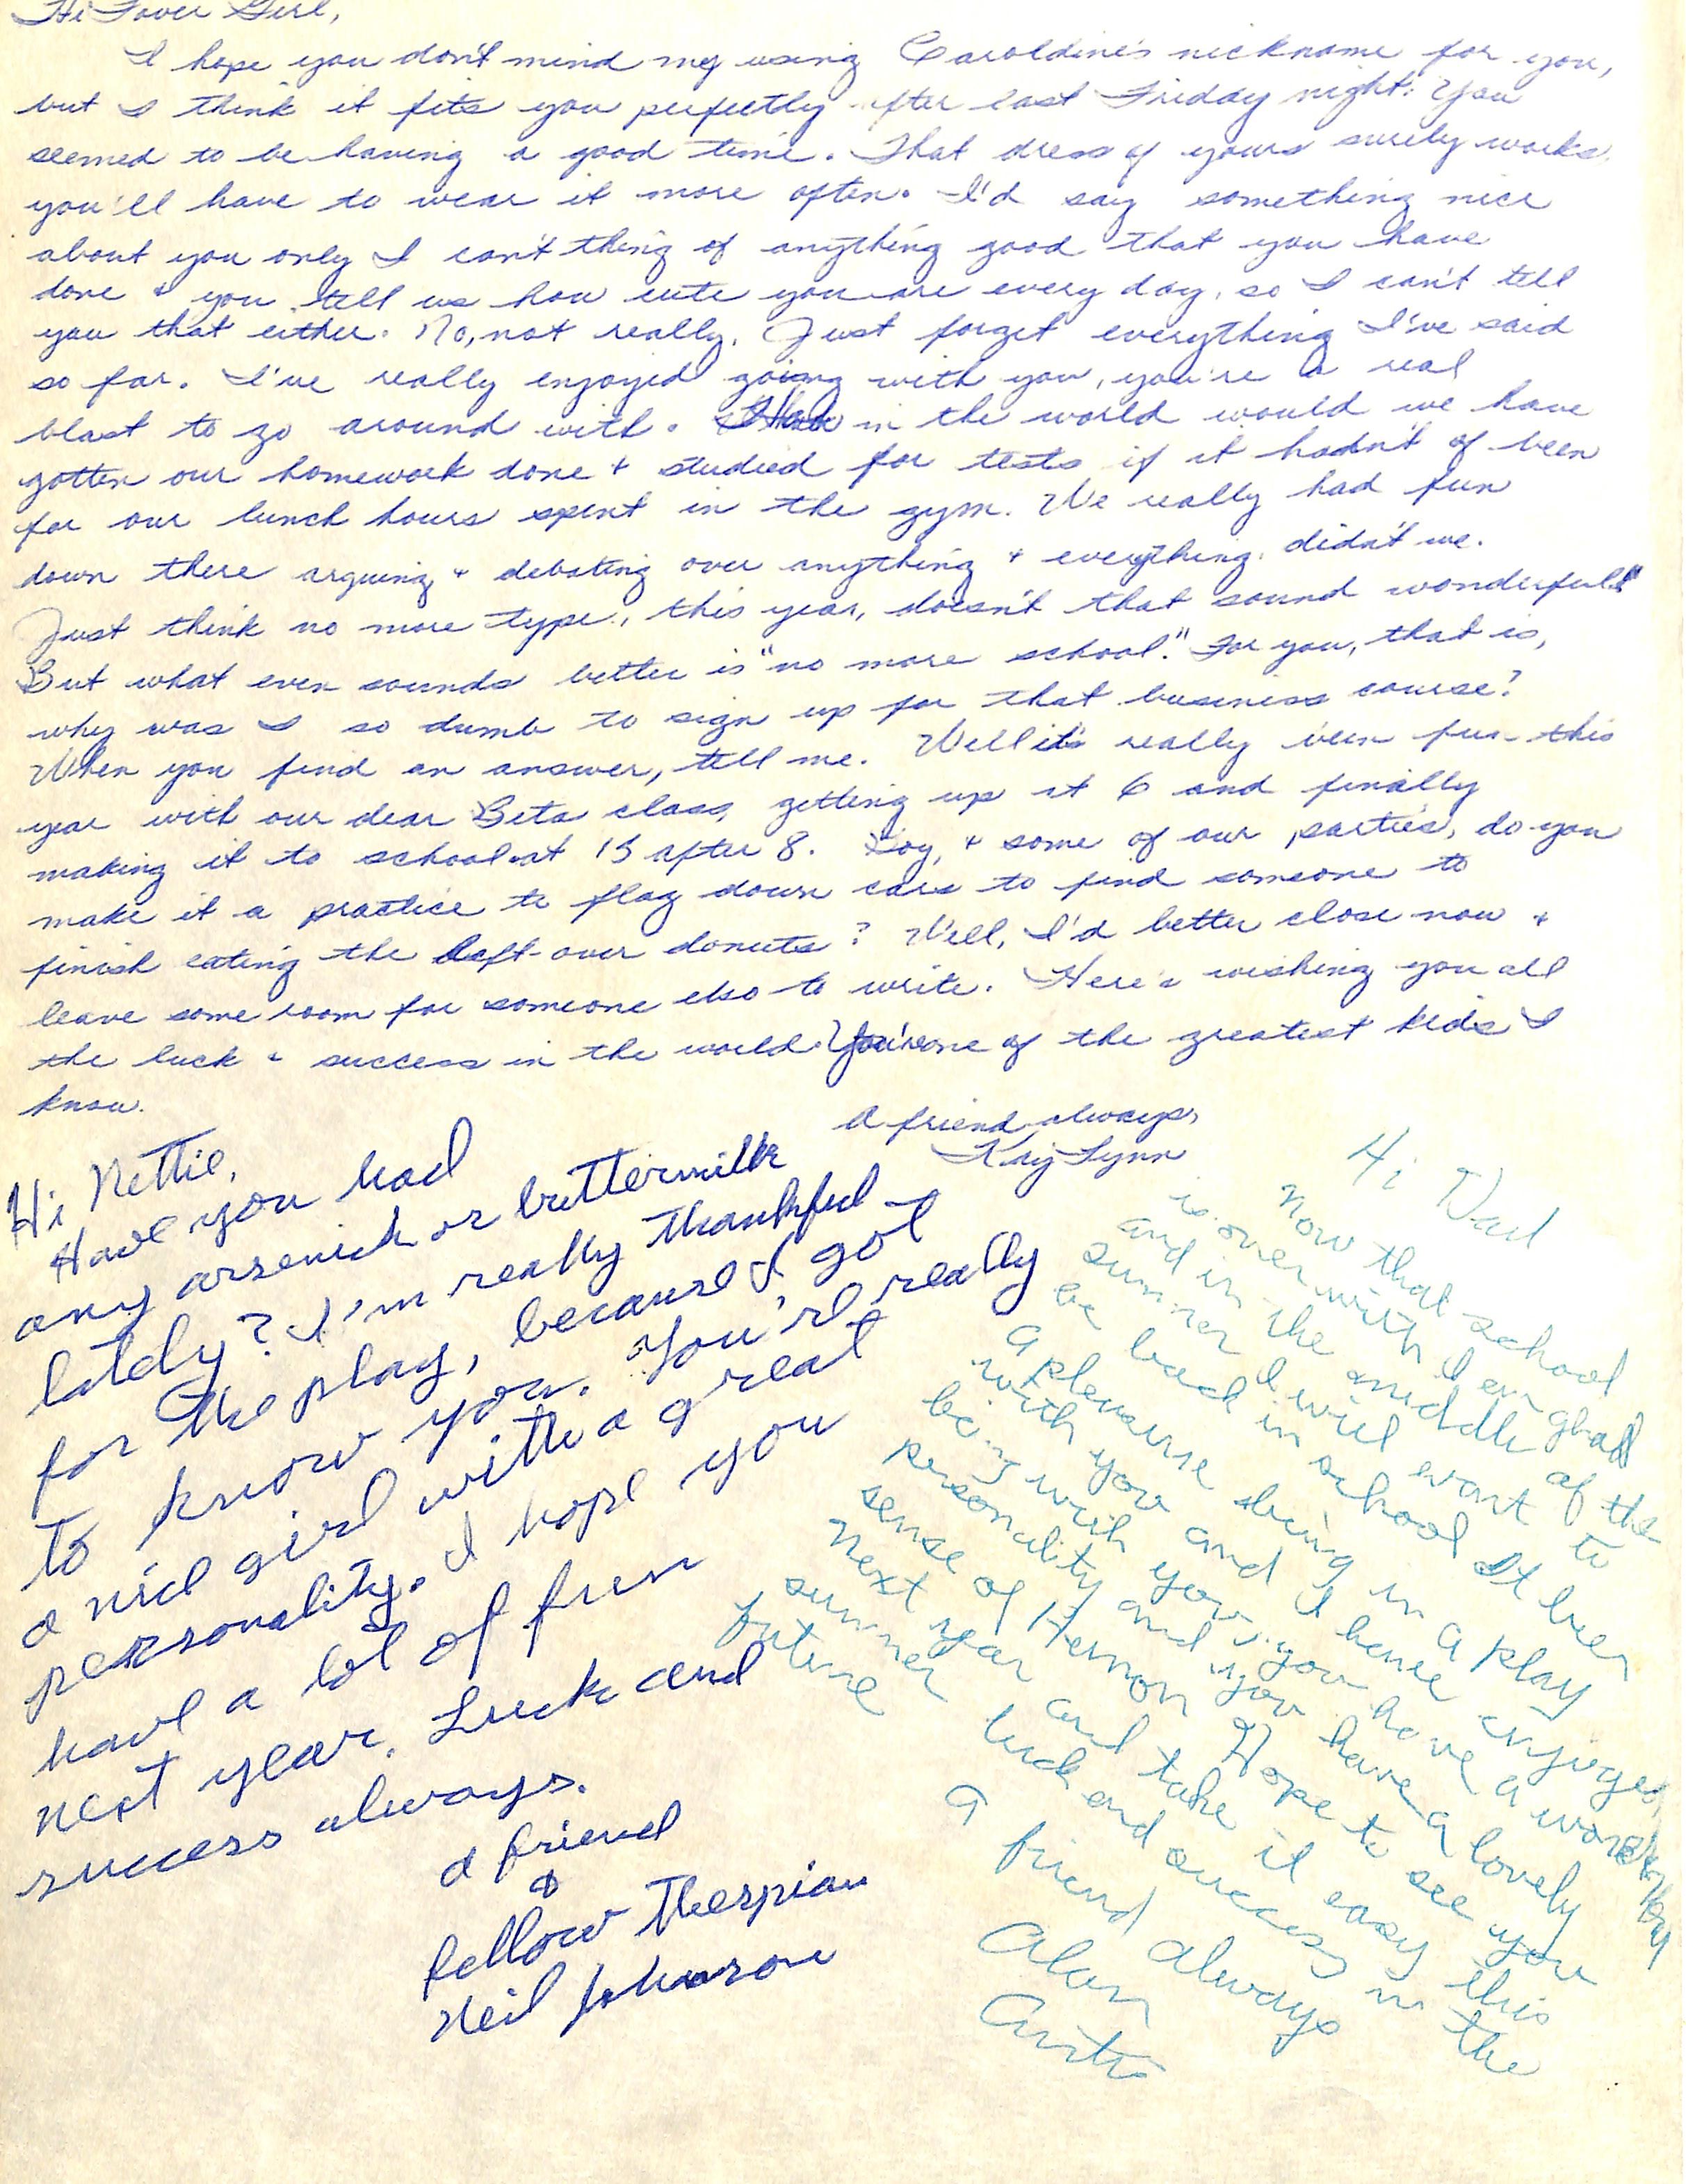 Hi Lover Girl,
I hope you don't mind my using Caroldine's nickname for you,
but I think it fits you perfectly after last Friday night. You
seemed to be having a good time. That dress of yours surely works.
you'll have to wear it more often. I'd say something nice
about you only I can't thing of anything good that you have
done + you tell us how cute you are every day, so I can't tell
you that either. No, not really. Just forget everything I've said
so far. I've really enjoyed going with you, you're a real
blast to go around with. How in the world would we have
gotten our homework done + studied for tests if it hadn't of been
for our lunch hours spent in the gym. We really had fun
down there arguing + debating over anything + everything, didn't we.
Just think no more type, this year, doesn't that sound wonderful!"
But what even sounds better is "no more school." For you, that is,
why was I so dumb to sign up for that business course?
When you find an answer, tell me. Well it's really been fun this
year with our dear Beta class, getting up at 6 and finally
making it to school at 15 after 8. Boy, + some of our parties, do you
make it a practice to flag down cars to find someone to
finish eating the left-over donuts? Well, I'd better close now +
leave some room for someone else to write. Here's wishing you all
the luck + success in the world. You're one of the greatest kids I
know.
A friend always,
Kay Lynn
Hi Nettie,
Have you had
any arsenick or buttermilk
lately? I'm really thankful
for the play, because I got
to know you. You're really
a nice girl with a great
personality. I hope you
have a lot of fun
next year. Luck and
success always.
a friend
&
fellow Thespian
Neil Johnson
Hi
Now that school
is over with I am glad
and in the middle of the
summer I will want to
be back in school It been
a pleasure being in a play
with you and I have enjoyed
being with you. you have a wonderful
personality and you have a lovely
sense of Hemor Hope to see you
next year and take it easy this
summer luck and success in the
future
A friend always
Alan